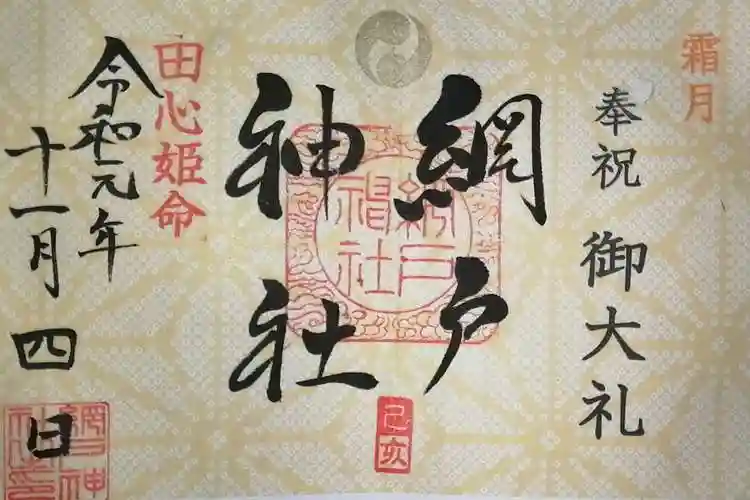 霜月
奉祝 御大礼
網戸
神社
田心姫命
令和元年
十一月四日
己亥
網戸
神社